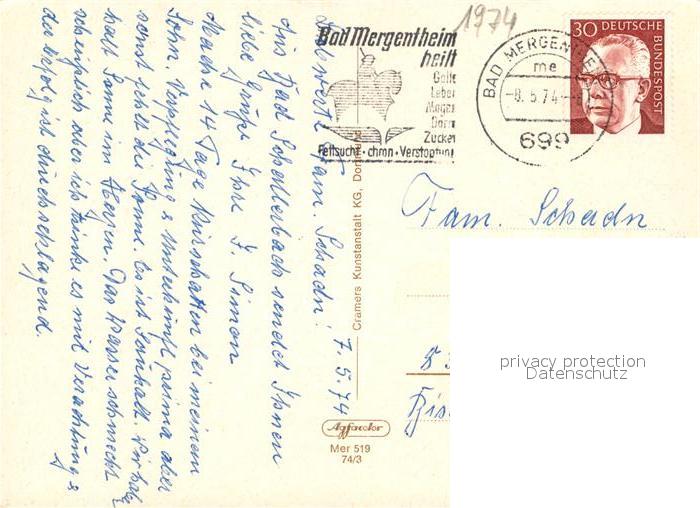 1974
Bad Mergentheim
heilt
Galle
Leber
Magen
Darm
Zucker
Fettsucht · chron · Verstopfung
BAD MERGENTHEIM
me
-8.5.74-
699
30 DEUTSCHE
BUNDESPOST
Fam. Schadn
7.5.74
Sehr werte Fam. Schadn!
Aus Bad Schellerbach sendet Ihnen
liebe Grüße Ihre F. Simon
Mache 14 Tage Urlaub bei meinem
Sohn. Verpflegung & Unterkunft prima aber
sonst fehlt die Sonne. Es ist saukalt. Wir hab
halt Sonne im Herzen. Das Wasser schmeckt
scheußlich aber ich trinke es mit Verachtung &
der Erfolg ist durchschlagend.
Cramers Kunstanstalt KG, Dortmund
Agfacolor
Mer 519
74/3
privacy protection
Datenschutz